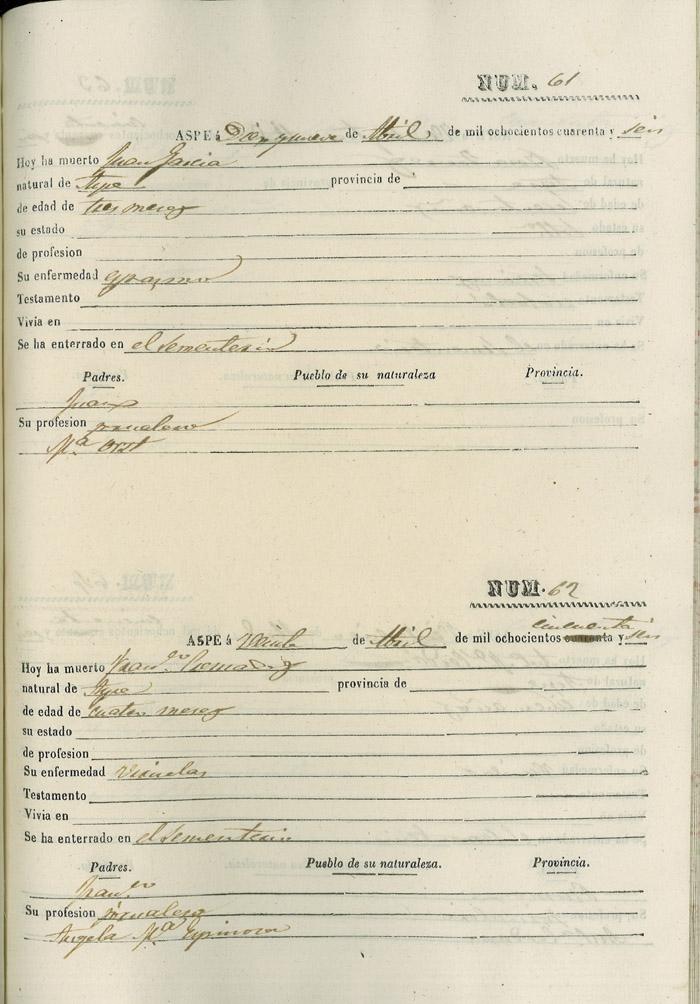 NUM. 61
ASPE á Diez y nueve de Abril de mil ochocientos cuarenta y seis
Hoy ha muerto Juan Garcia
natural de Aspe provincia de
de edad de tres meses
su estado
de profesion
Su enfermedad espasmo
Testamento
Vivia en
Se ha enterrado en el sementerio
Padres. Pueblo de su naturaleza Provincia.
Juan
Su profesion jornalero
Mª
NUM. 62
cincuenta
ASPE á Veinte de Abril de mil ochocientos cuarenta y seis
Hoy ha muerto Fran.co
natural de Aspe provincia de
de edad de cuatro meses
su estado
de profesion
Su enfermedad Viruelas
Testamento
Vivia en
Se ha enterrado en el sementerio
Padres. Pueblo de su naturaleza. Provincia.
Fran.co
Su profesion jornalero
Angela Mª Espinosa